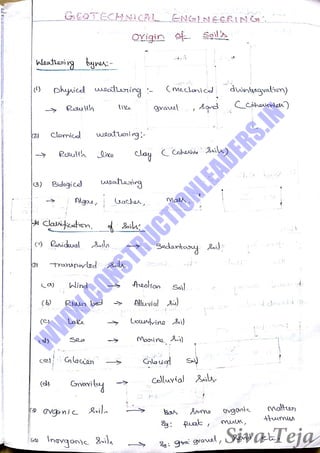 GEOTECHNICAL ENGINEERING:
Origin of Soils
Weathering types:-
(1) physical weathering :- (mechanical disintegration)
→ Results like gravel, sand (Cohesionless)
(2) Chemical weathering:-
→ Results like clay (Cohesive Soils)
(3) Biological weathering
→ Algae,
Classification of Soils:-
(1) Residual Soils → Sedentary Soil
(2) Transported Soils
(a) Wind → Aeolian Soil
(b) River bed → Alluvial Soil
(c) Lake → Lacustrine Soil
(d) Sea → Marine Soil
(e) Glacier → Glacial Soil
Gravity → Colluvial Soils
organic Soils → organic matter
Eg: peat, muck, Humus
Inorganic Soils → Eg: gravel,
WWW.CONSTRUCTIONLEADERS.IN
Siva Teja